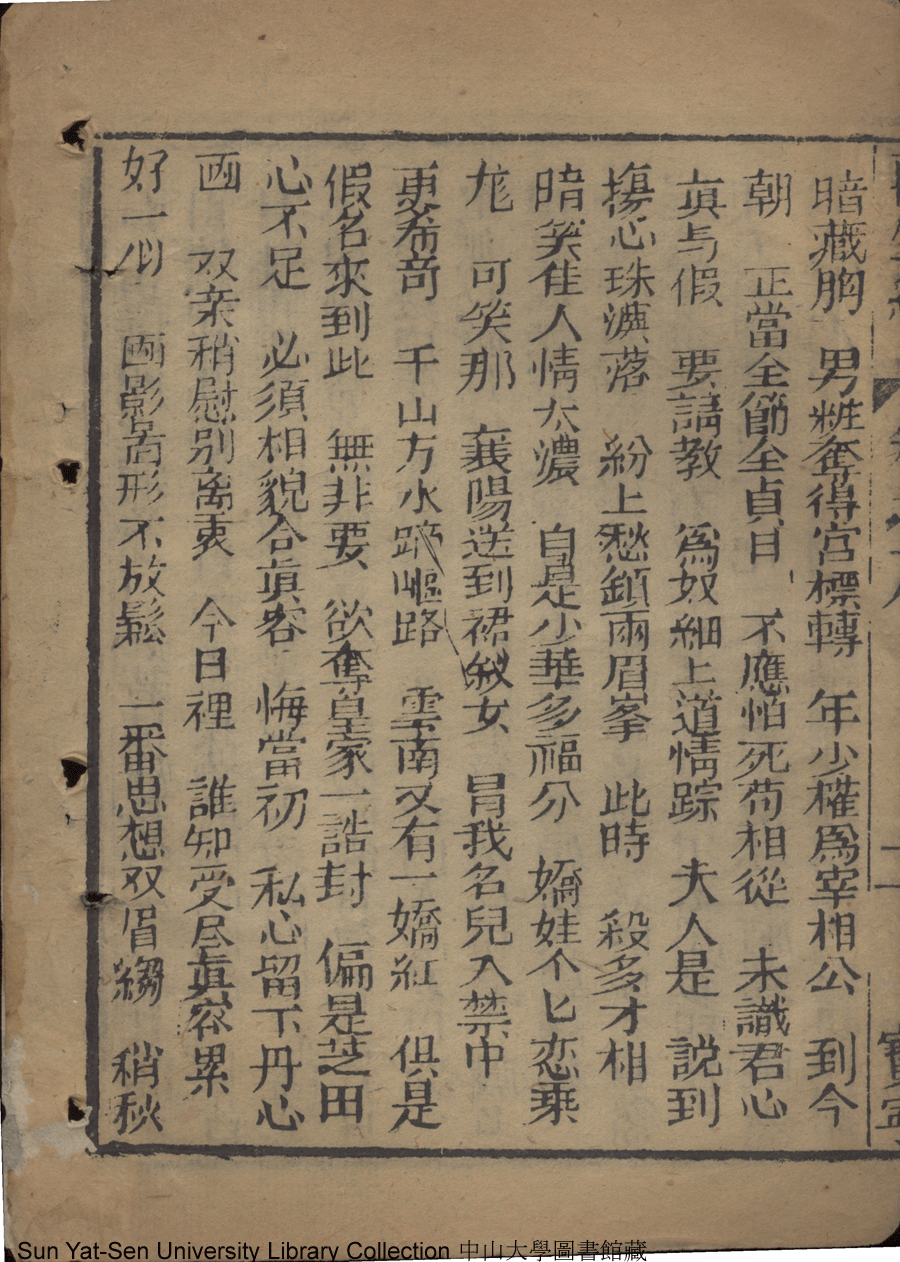 暗藏胸　男粧奪得宫標轉　年少權爲宰相公　到今
朝　正當全節全貞日　不應怕死苟相從　未識君心
真与假　要請教　爲奴細上道情踪　夫人是　説到
傷心珠淚落　紛上愁鎖兩眉峯　此時　殺多才相
暗笑佳人情太濃　自是少華多福分　嬌娃个匕恋乘
龙　可笑那　襄陽送到裙釵女　冐我名兒入禁中
更希奇　千山万水跋嶇路　雲南又有一嬌紅　俱是
假名來到此　無非要　欲奪皇家一誥封　偏是芝田
心不足　必須相貌合真容　悔當初　私心留下丹心
画　双亲稍慰别离衷　今日裡　誰知受尽真容累
好一似　画影啚形不放鬆　一番思想双眉縐　稍秋
Sun Yat-Sen University Library Collection 中山大學圖書館藏